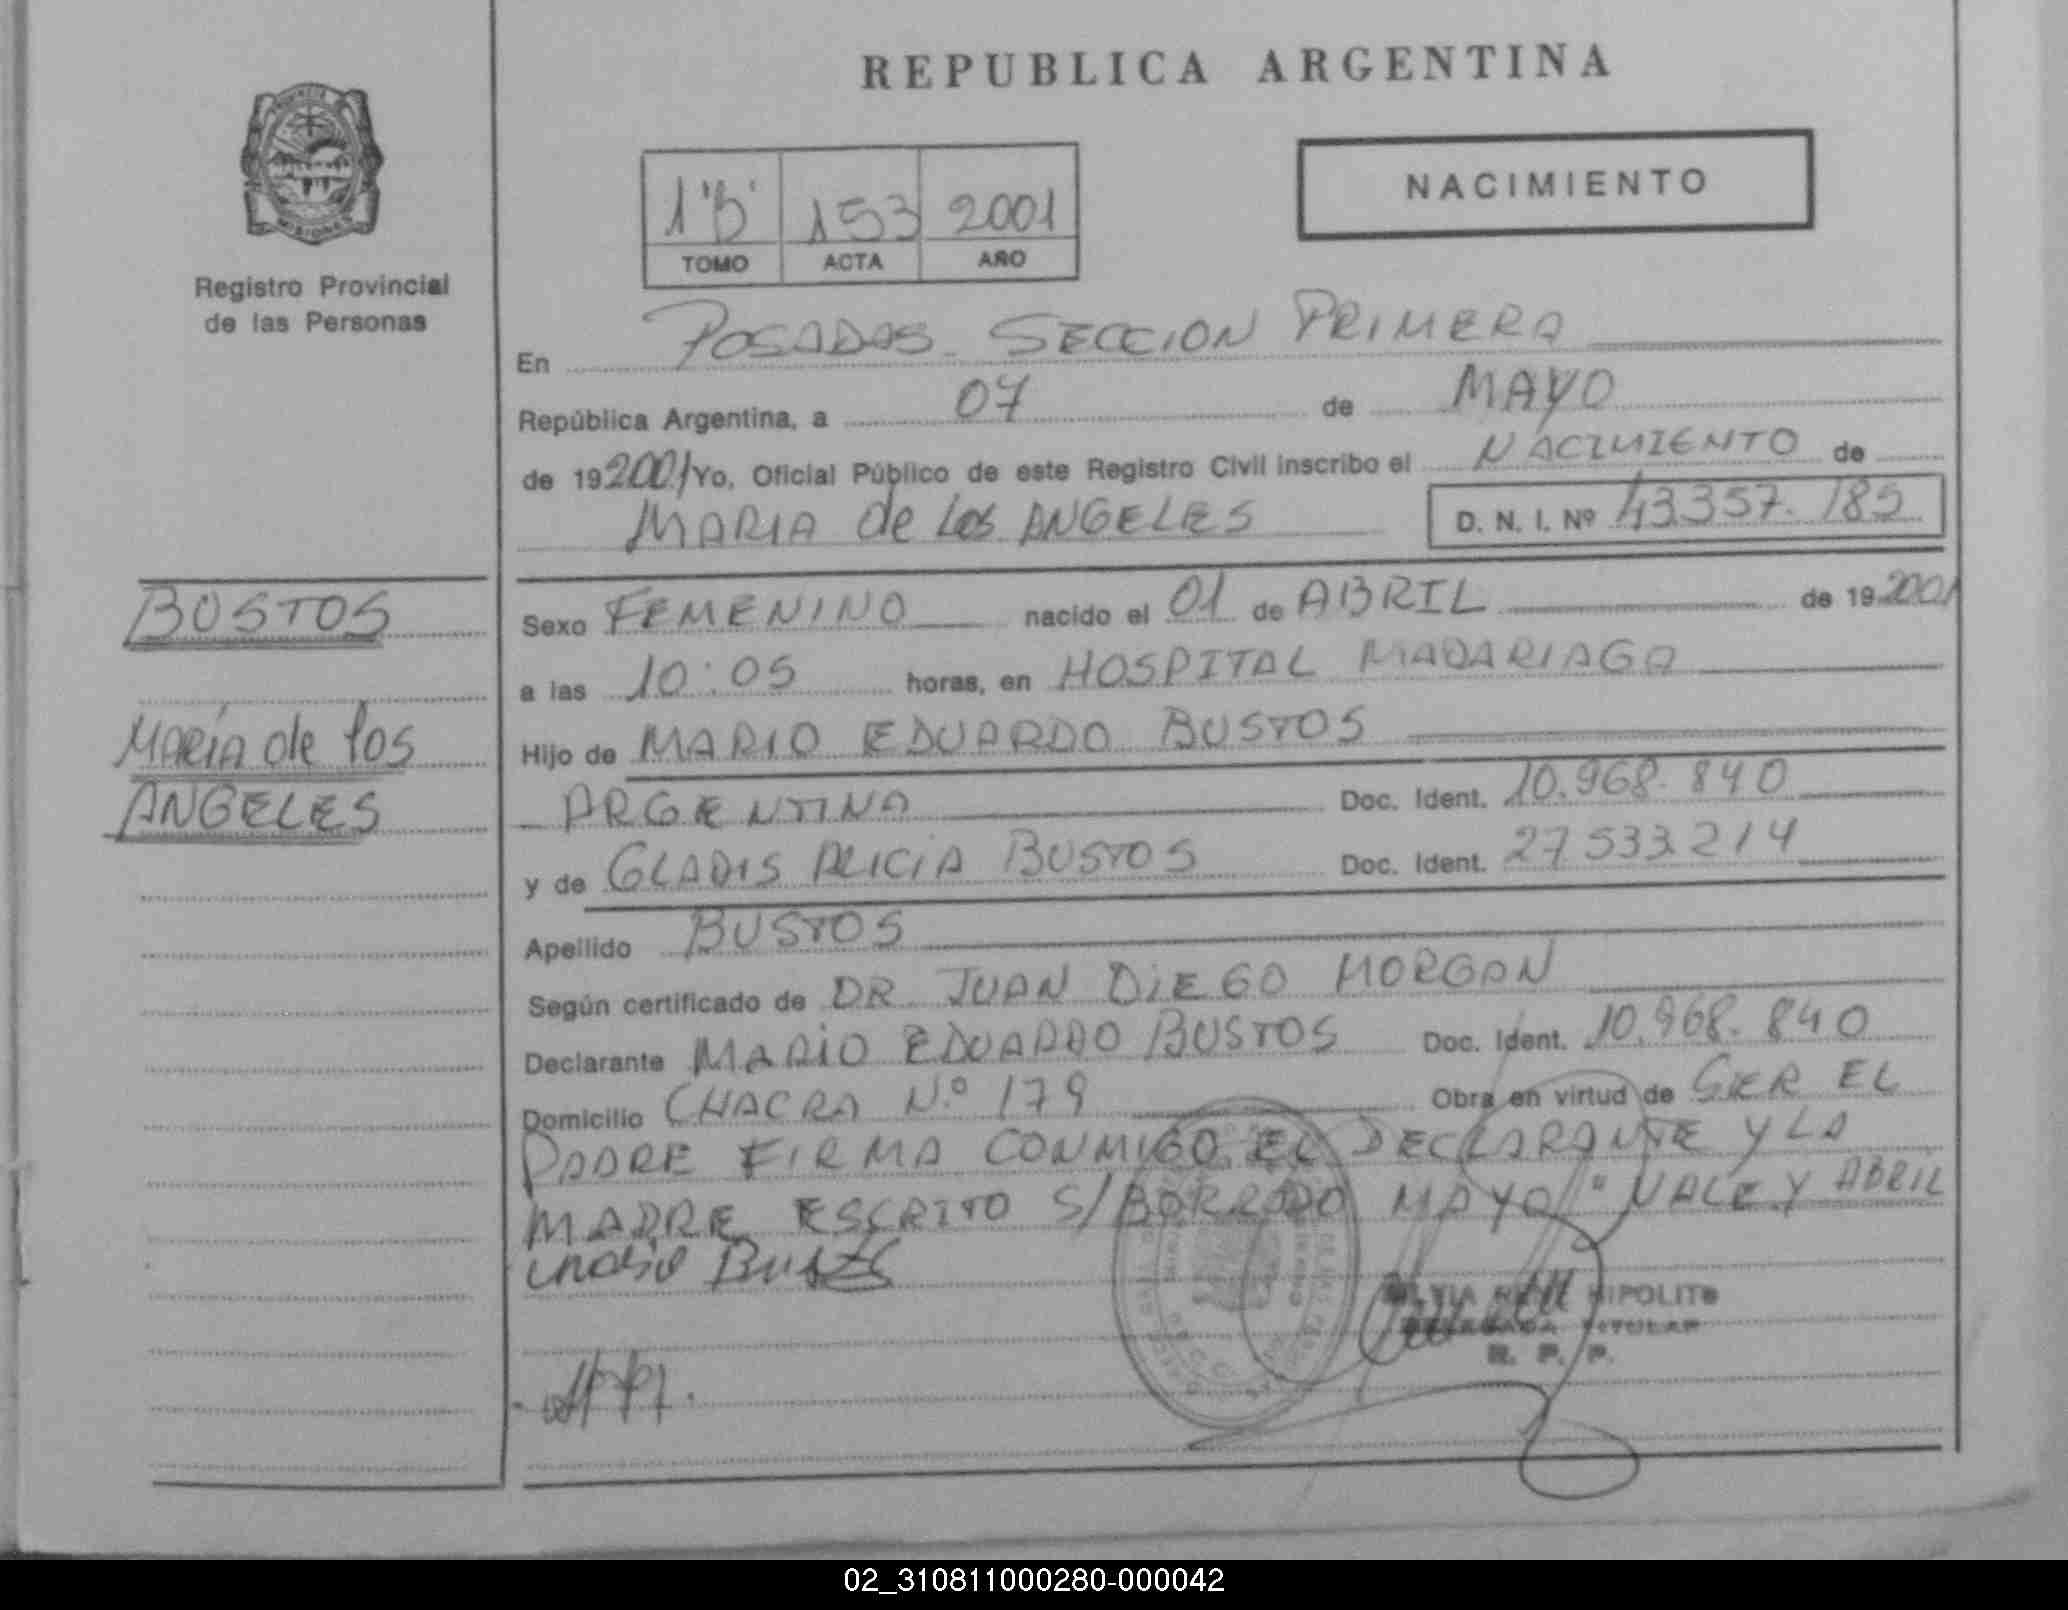 REPUBLICA ARGENTINA
NACIMIENTO
1 "B" 153 2001
TOMO ACTA AÑO
Registro Provincial
de las Personas
En POSADAS SECCION PRIMERA
República Argentina, a 07 de MAYO
de 19 2001 Yo, Oficial Público de este Registro Civil inscribo el NACIMIENTO de
MARIA de los ANGELES D. N. I. Nº 43.357.185
BUSTOS
MARÍA de los
ANGELES
Sexo FEMENINO nacido el 01 de ABRIL de 19 2001
a las 10:05 horas, en HOSPITAL MADARIAGA
Hijo de MARIO EDUARDO BUSTOS
ARGENTINA Doc. Ident. 10.968.840
y de GLADIS ALICIA BUSTOS Doc. Ident. 27.533.214
Apellido BUSTOS
Según certificado de DR JUAN DIEGO MORGAN
Declarante MARIO EDUARDO BUSTOS Doc. Ident. 10.968.840
Domicilio CHACRA N.º 179 Obra en virtud de SER EL
PADRE FIRMA CONMIGO EL DECLARANTE Y LA
MADRE ESCRITO S/BORRADO MAYO " VALE Y ABRIL
Bustos
HIPOLITO
DELEGADA TITULAR
R. P. P.
02_310811000280-000042